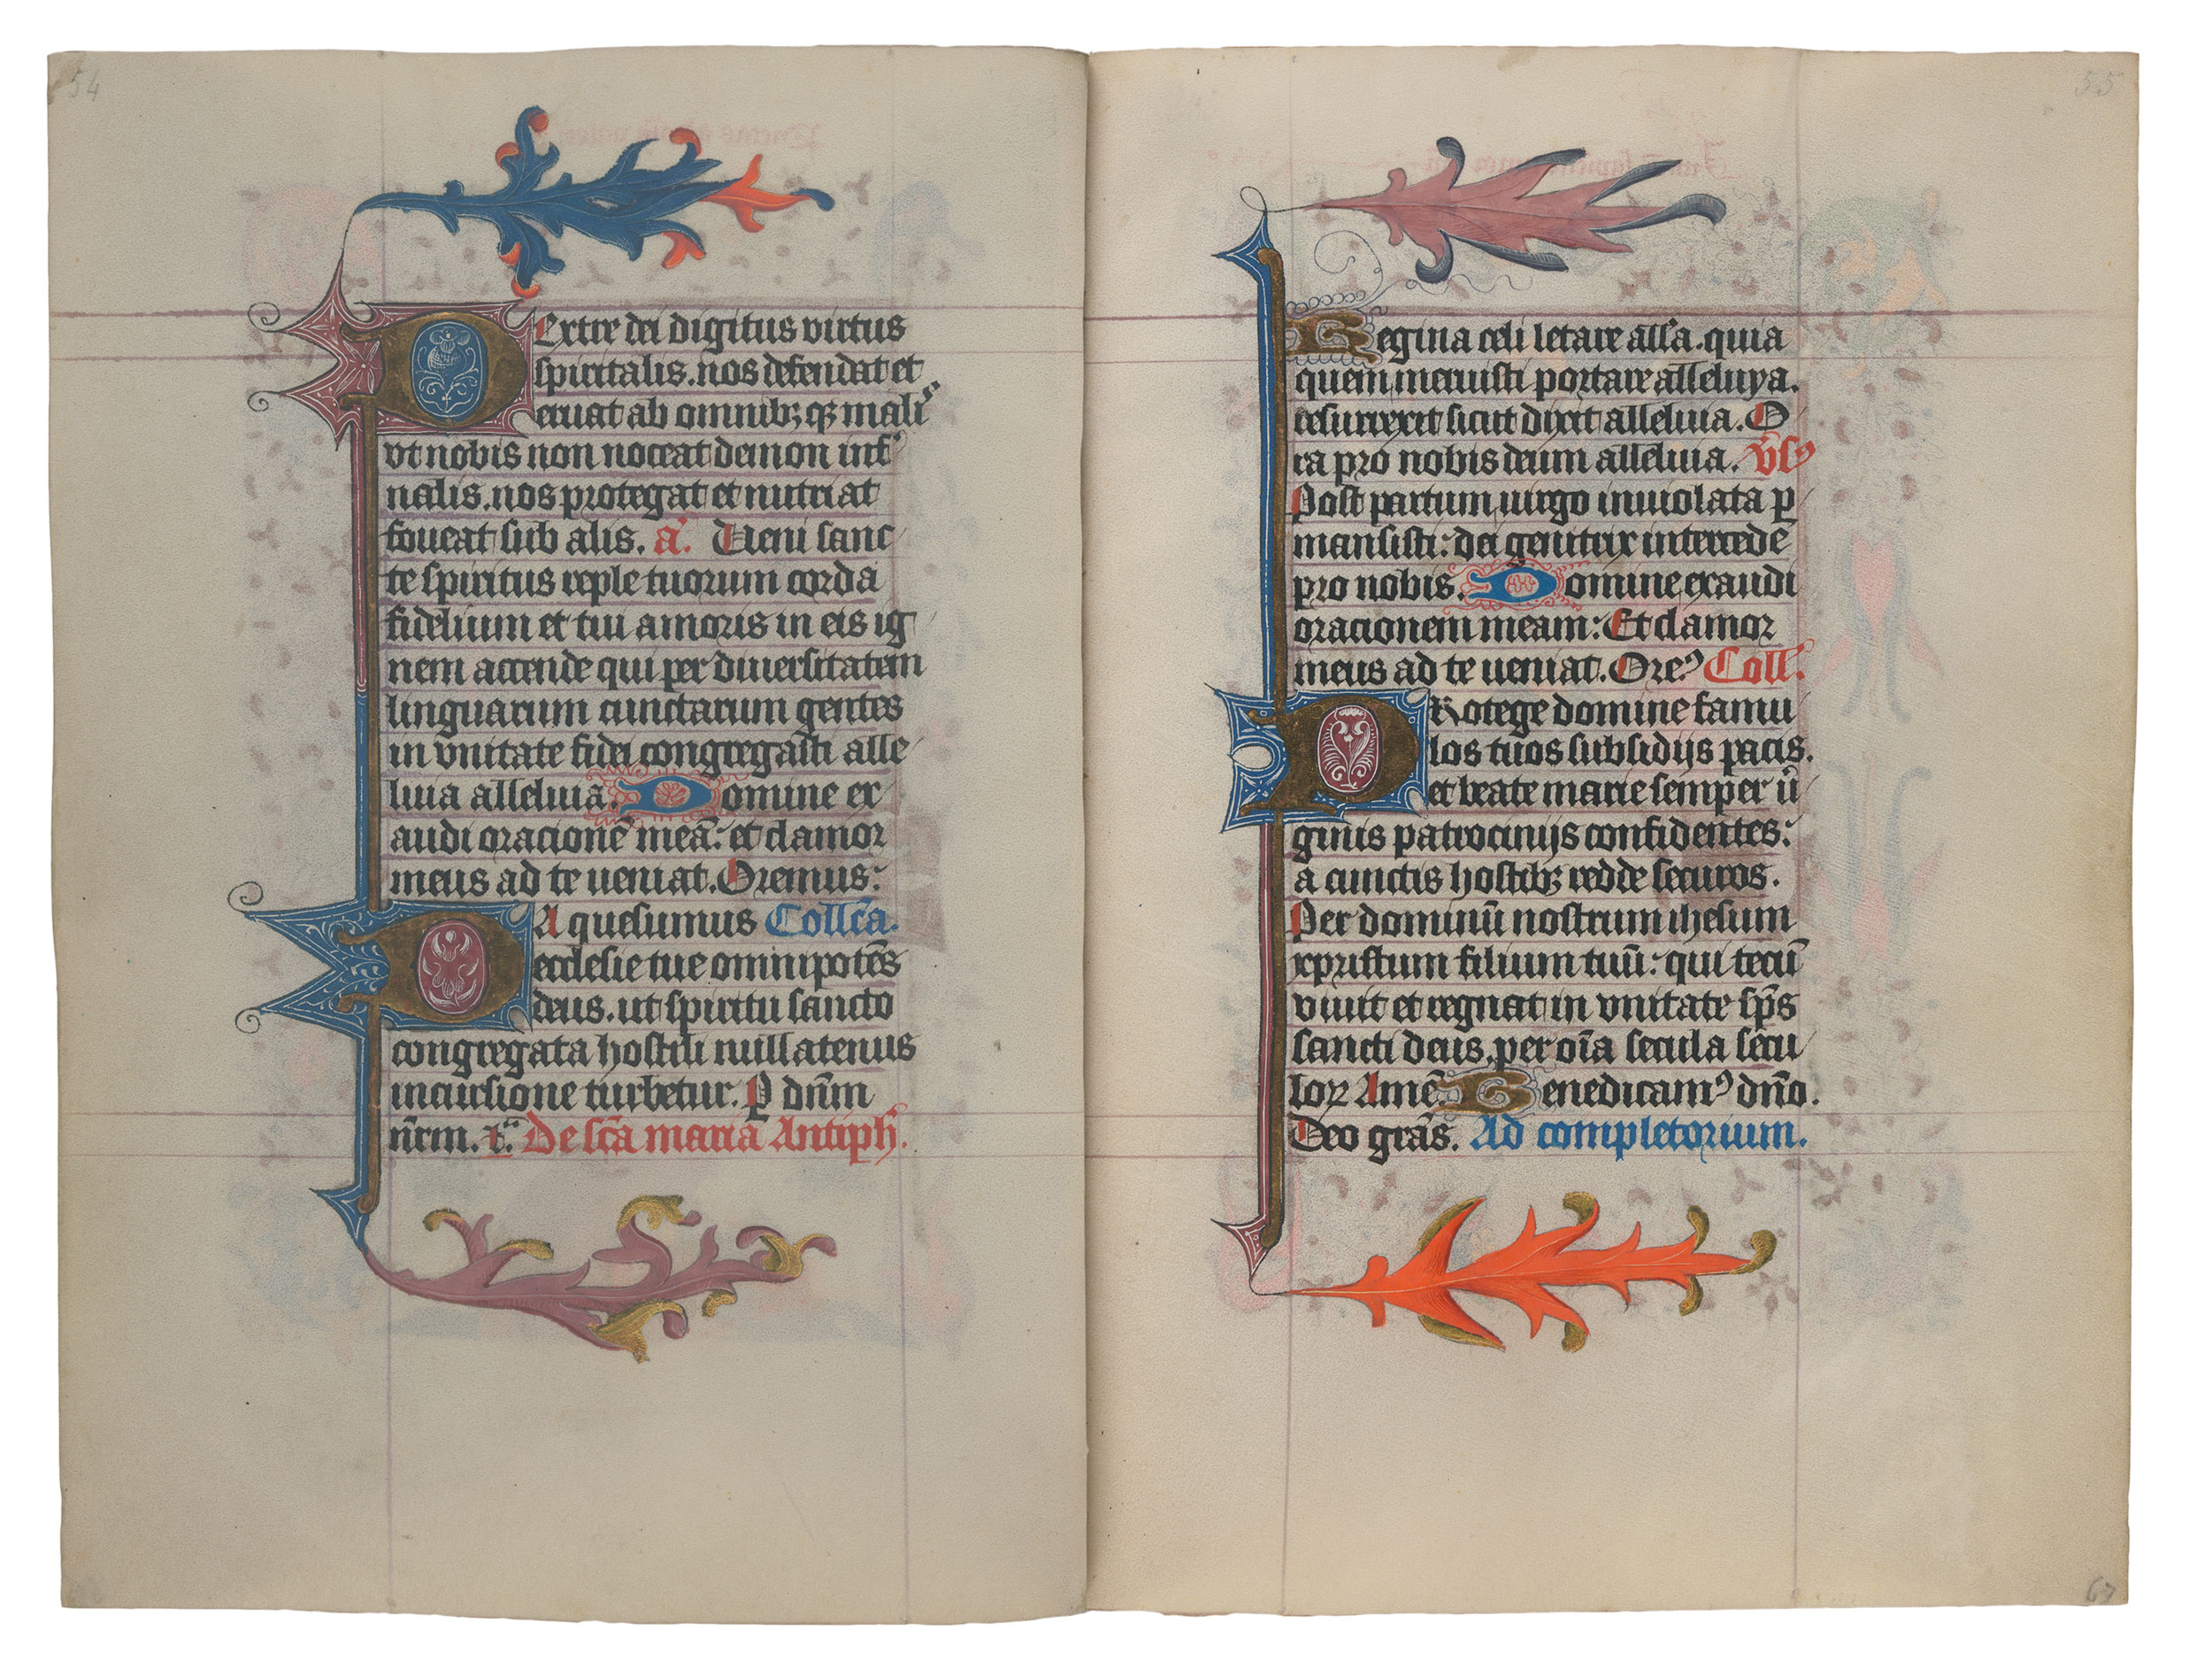 54
Dextre dei digitus virtus
spiritalis. nos defendat et
eruat ab omnibꝫ qꝫ malis
vt nobis non noceat demon inf
nalis. nos protegat et nutriat
foueat sub alis. a. Ueni sanc
te spiritus reple tuorum corda
fidelium et tui amoris in eis ig
nem accende qui per diuersitatem
linguarum cunctarum gentes
in vnitate fidei congregasti alle
luia alleluia. Domine ex
audi oracionē meā: et clamor
meus ad te ueniat. Oremus:
DA quesumus Collc̄a.
ecclesie tue omnipotēs
deus. ut spiritu sancto
congregata hostili nullatenus
incursione turbetur. P dn̄m
nr̄m. De sc̄a maria Antiph
55
Regina celi letare all̄a. quia
quem meruisti portare alleluya.
resurrexit sicut dixit alleluia. O
ra pro nobis deum alleluia. vs̄ꝰ
Post partum uirgo inuiolata ꝑ
mansisti: dei genitrix intercede
pro nobis. Domine exaudi
oracionem meam: Et clamor
meus ad te ueniat. Oreꝰ Coll.
PRotege domine famu
los tuos subsidijs pacis.
et beate marie semper ūi
ginis patrocinijs confidentes:
a cunctis hostibꝫ redde securos.
Per dominū nostrum ihesum
xpristum filium tuū: qui tecū
viuit et regnat in vnitate sp̄s
sancti deus. per oīa secula secu
loꝝ Amē. Benedicamꝰ dn̄o.
Deo grās. Ad completorium.
67